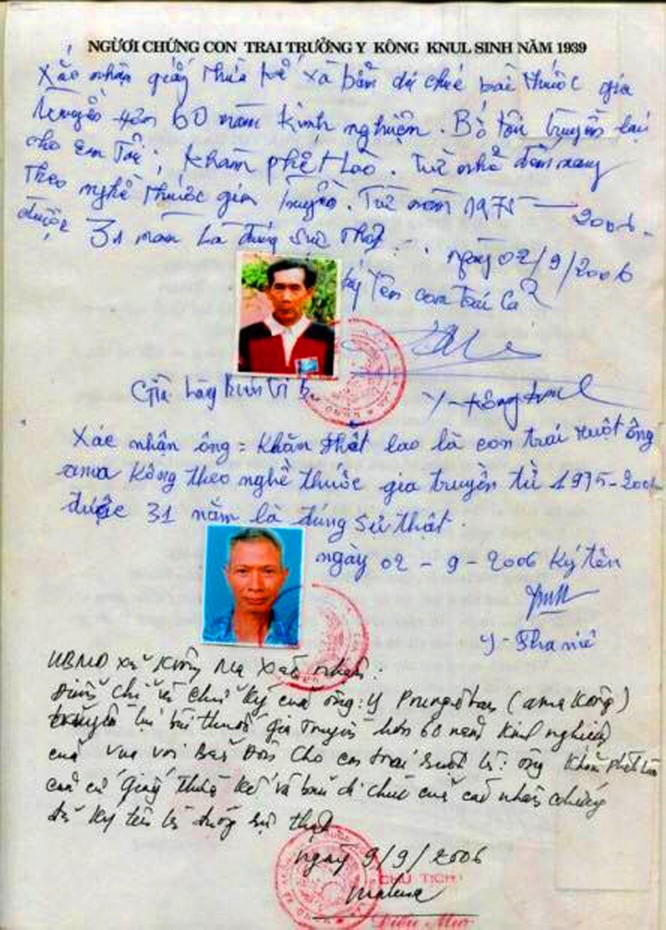 NGƯỜI CHỨNG CON TRAI TRƯỞNG Y KÔNG KNUL SINH NĂM 1939
Xác nhận giấy thừa kế và bản di chúc bài thuốc gia
truyền hơn 60 năm kinh nghiệm. Bố tôi truyền lại
cho em Tôi; Khăm phết Lào. Từ nhỏ đến nay
Theo nghề thuốc gia truyền. Từ năm 1975 — 2006.
được 31 năm là đúng sự thật.
ngày 02/9/2006
ký Tên con trai cả
Y-Kông knul
Già làng
Xác nhận ông = Khăn phết lao là con trai ruột ông
ama Kông theo nghề thuốc gia truyền từ 1975-2006
được 31 năm là đúng sử thật.
ngày 02 - 9 - 2006 Ký tên
Y- Tha
UBND xã Krông Na Xác nhận:
chữ ký của ông: Y Prung (ama Kông)
truyền lại bài thuốc gia Truyền hơn 60 năm Kinh nghiệm
của Vua Voi Bản Đôn Cho con trai ruột là: ông Khăm phết Lào
căn cứ Giấy thừa kế và bản di chúc của các nhân chứng
đã Ký tên là đúng sự thật
ngày 9/9/2006
CHỦ TỊCH